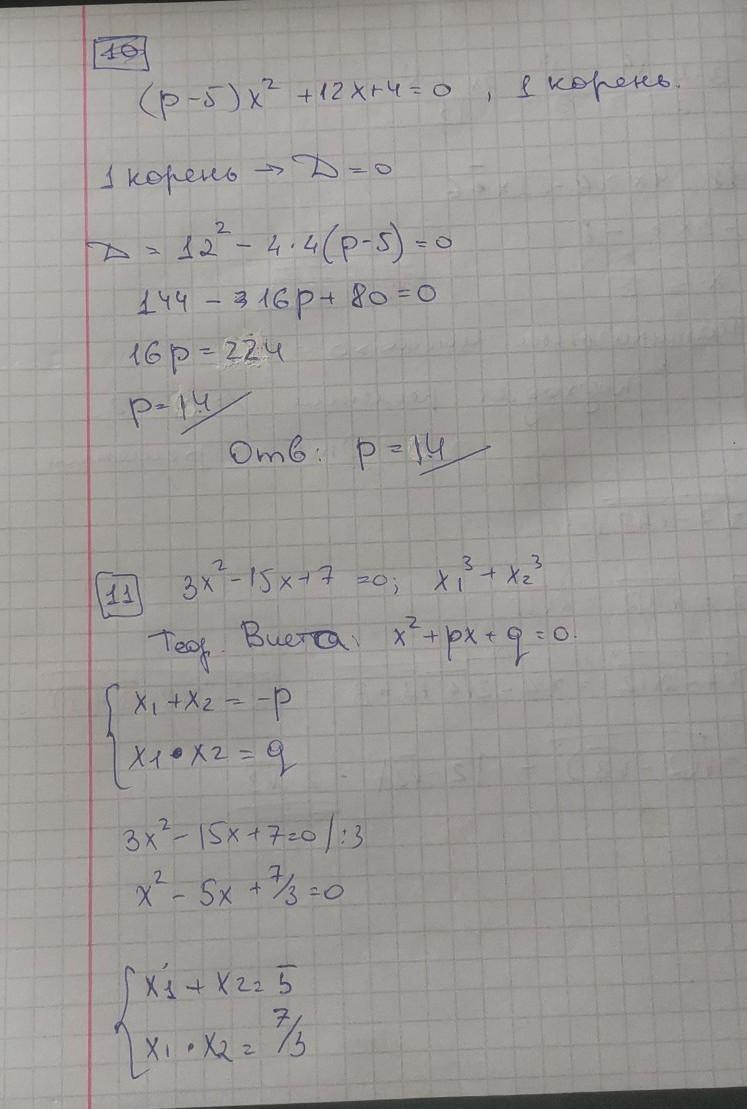 10
(p-5)x² +12x+4=0 , 1 корень.
1 корень → D=0
D = 12² - 4·4(p-5)=0
144 - 16p+ 80=0
16p=224
p=14
Отв: p=14
11 3x²-15x+7=0; x₁³+x₂³
Теор. Виета: x²+px+q=0.
x₁+x₂=-p
x₁•x₂=q
3x²-15x+7=0/:3
x²-5x+7/3=0
x₁+x₂=5
x₁·x₂=7/3